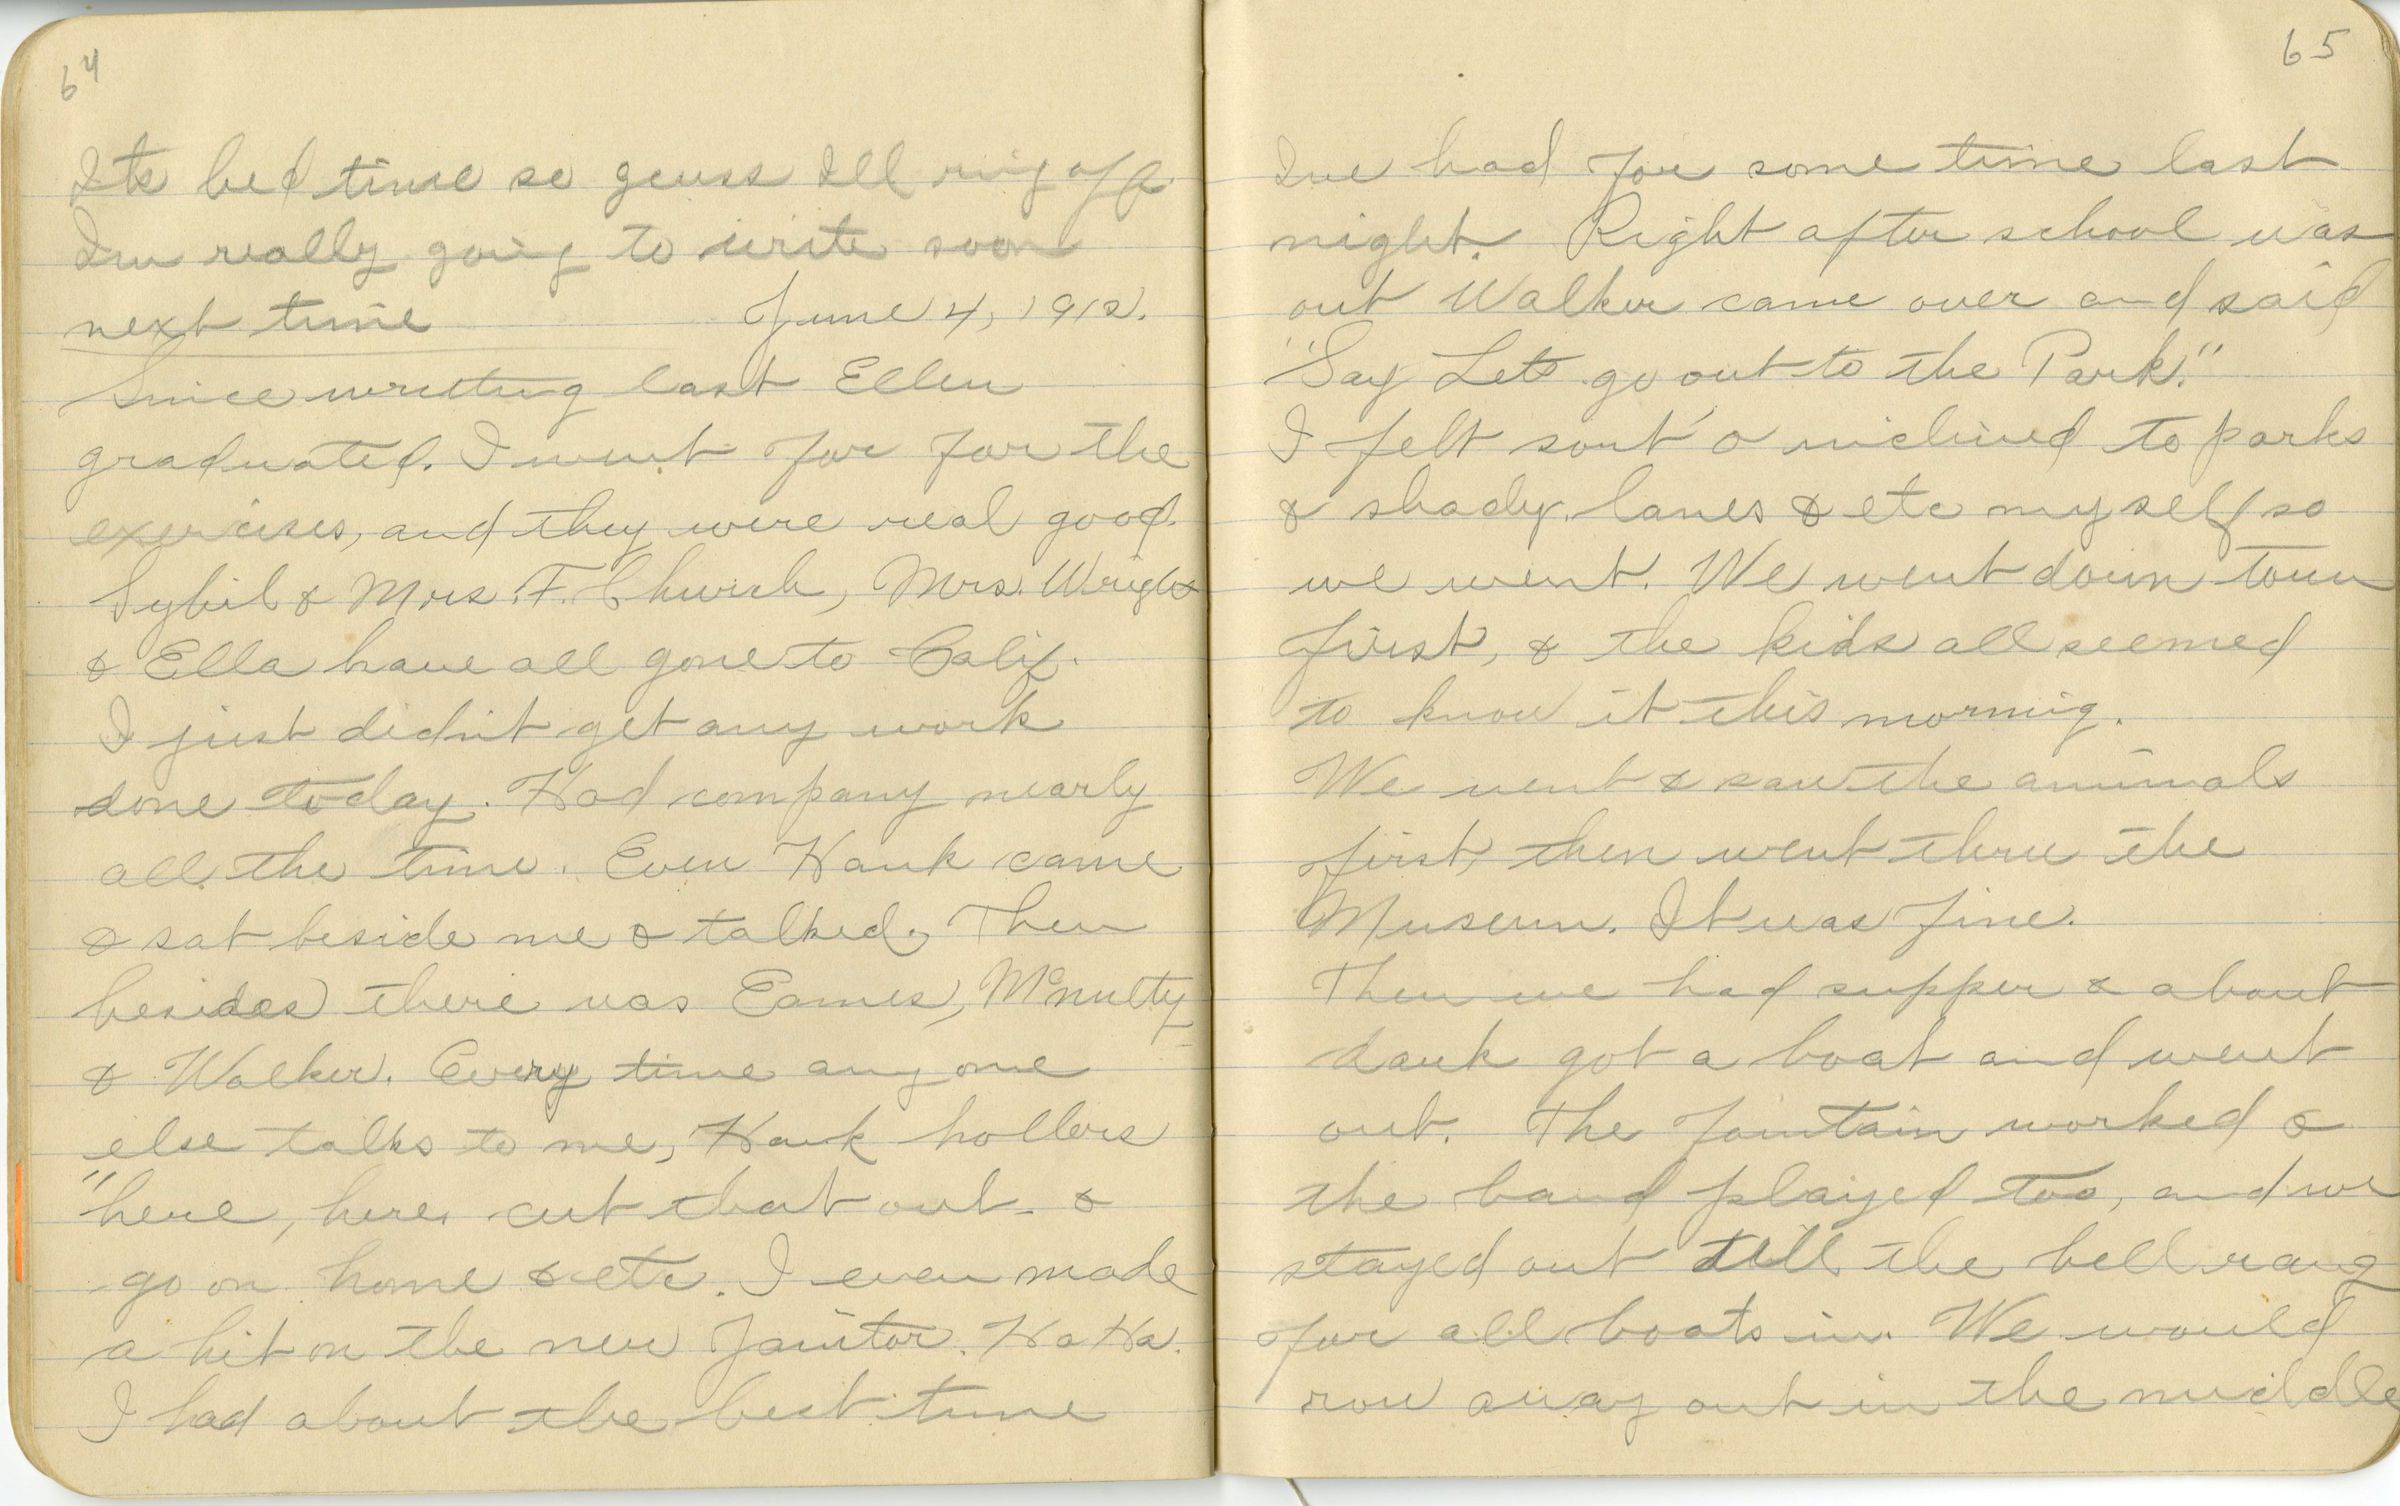 64
Its bed time so geuss Ill ring off
Im really going to write soon
next time June 4, 1912.
Since writting last Ellen
graduated. I went for for the
exercises, and they were real good.
Sybil & Mrs. F. Church, Mrs. Wright
& Ella have all gone to Calif.
I just didn't get any work
done today. Had company nearly
all the time. Even Hank came
& sat beside me & talked. Then
besides there was Eames, McNulty
& Walker. Every time any one
else talks to me, Hank hollers
"here, here, cut that out - &
go on home & etc. I even made
a hit on the new Janitor. Ha Ha.
I had about the best time
65
Ive had for some time last
night. Right after school was
out Walker came over and said
"Say Lets go out to the Park."
I felt sort' o inclined to parks
& shady lanes & etc myself so
we went. We went down town
first, & the kids all seemed
to know it this morning.
We went & saw the animals
first, then went thru the
Museum. It was fine.
Then we had supper & about
dark got a boat and went
out. The fountain worked &
the band played too, and we
stayed out till the bell rang
for all boats in. We would
row away out in the middle